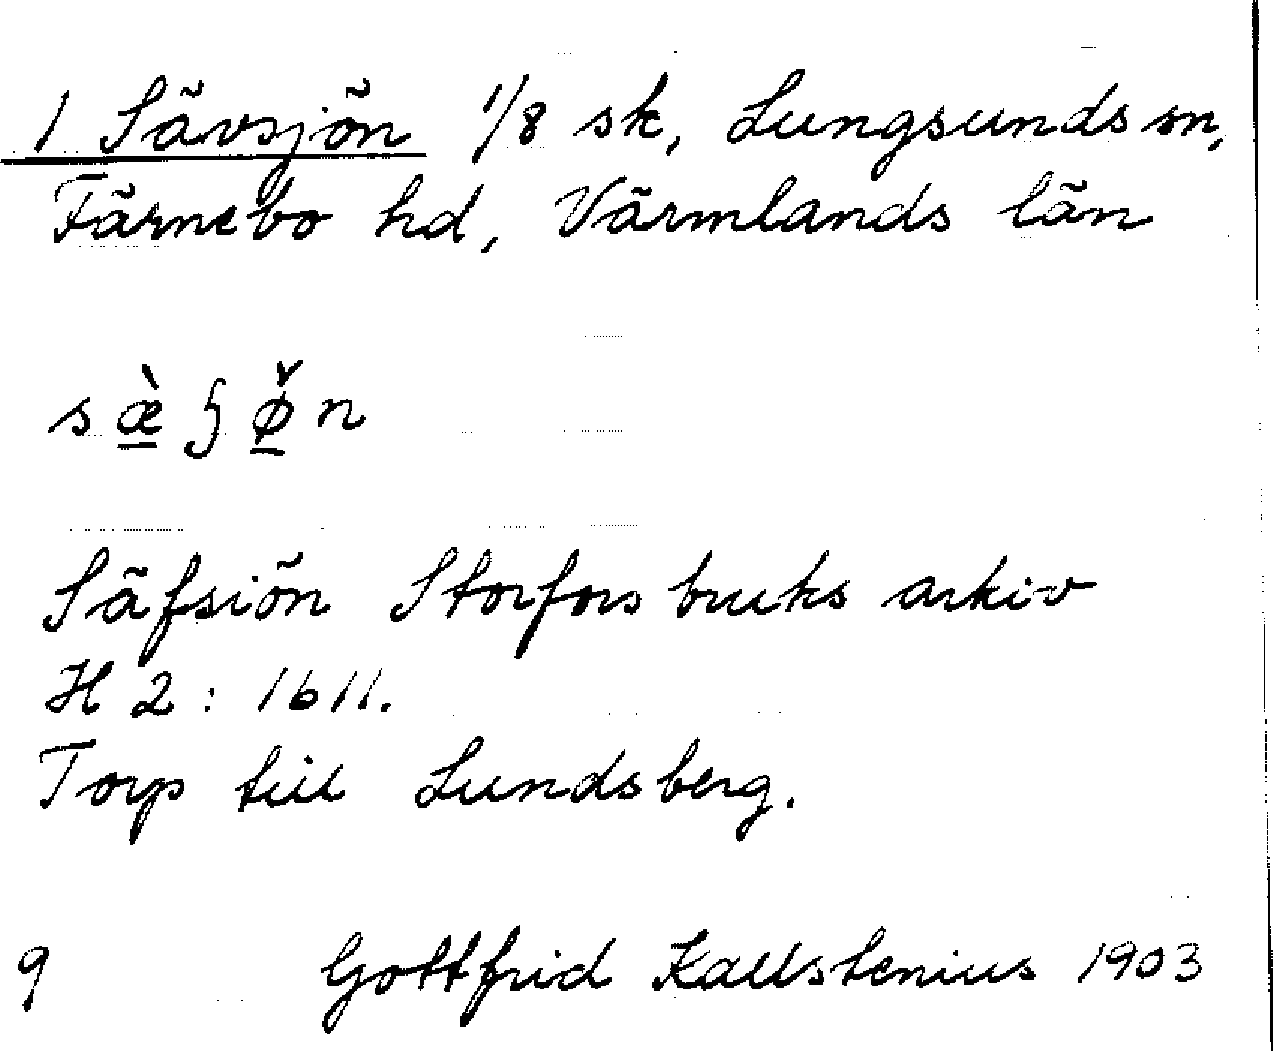 1 Sävsjön 1/8 sk, Lungsunds sn,
Färnebo hd, Värmlands län
s æ̱̀ ʃ̣ ø̱̌ n
Säfsiön Storfors bruks arkiv
H 2: 1611.
Torp till Lundsberg.
9 Gottfrid Kallstenius 1903